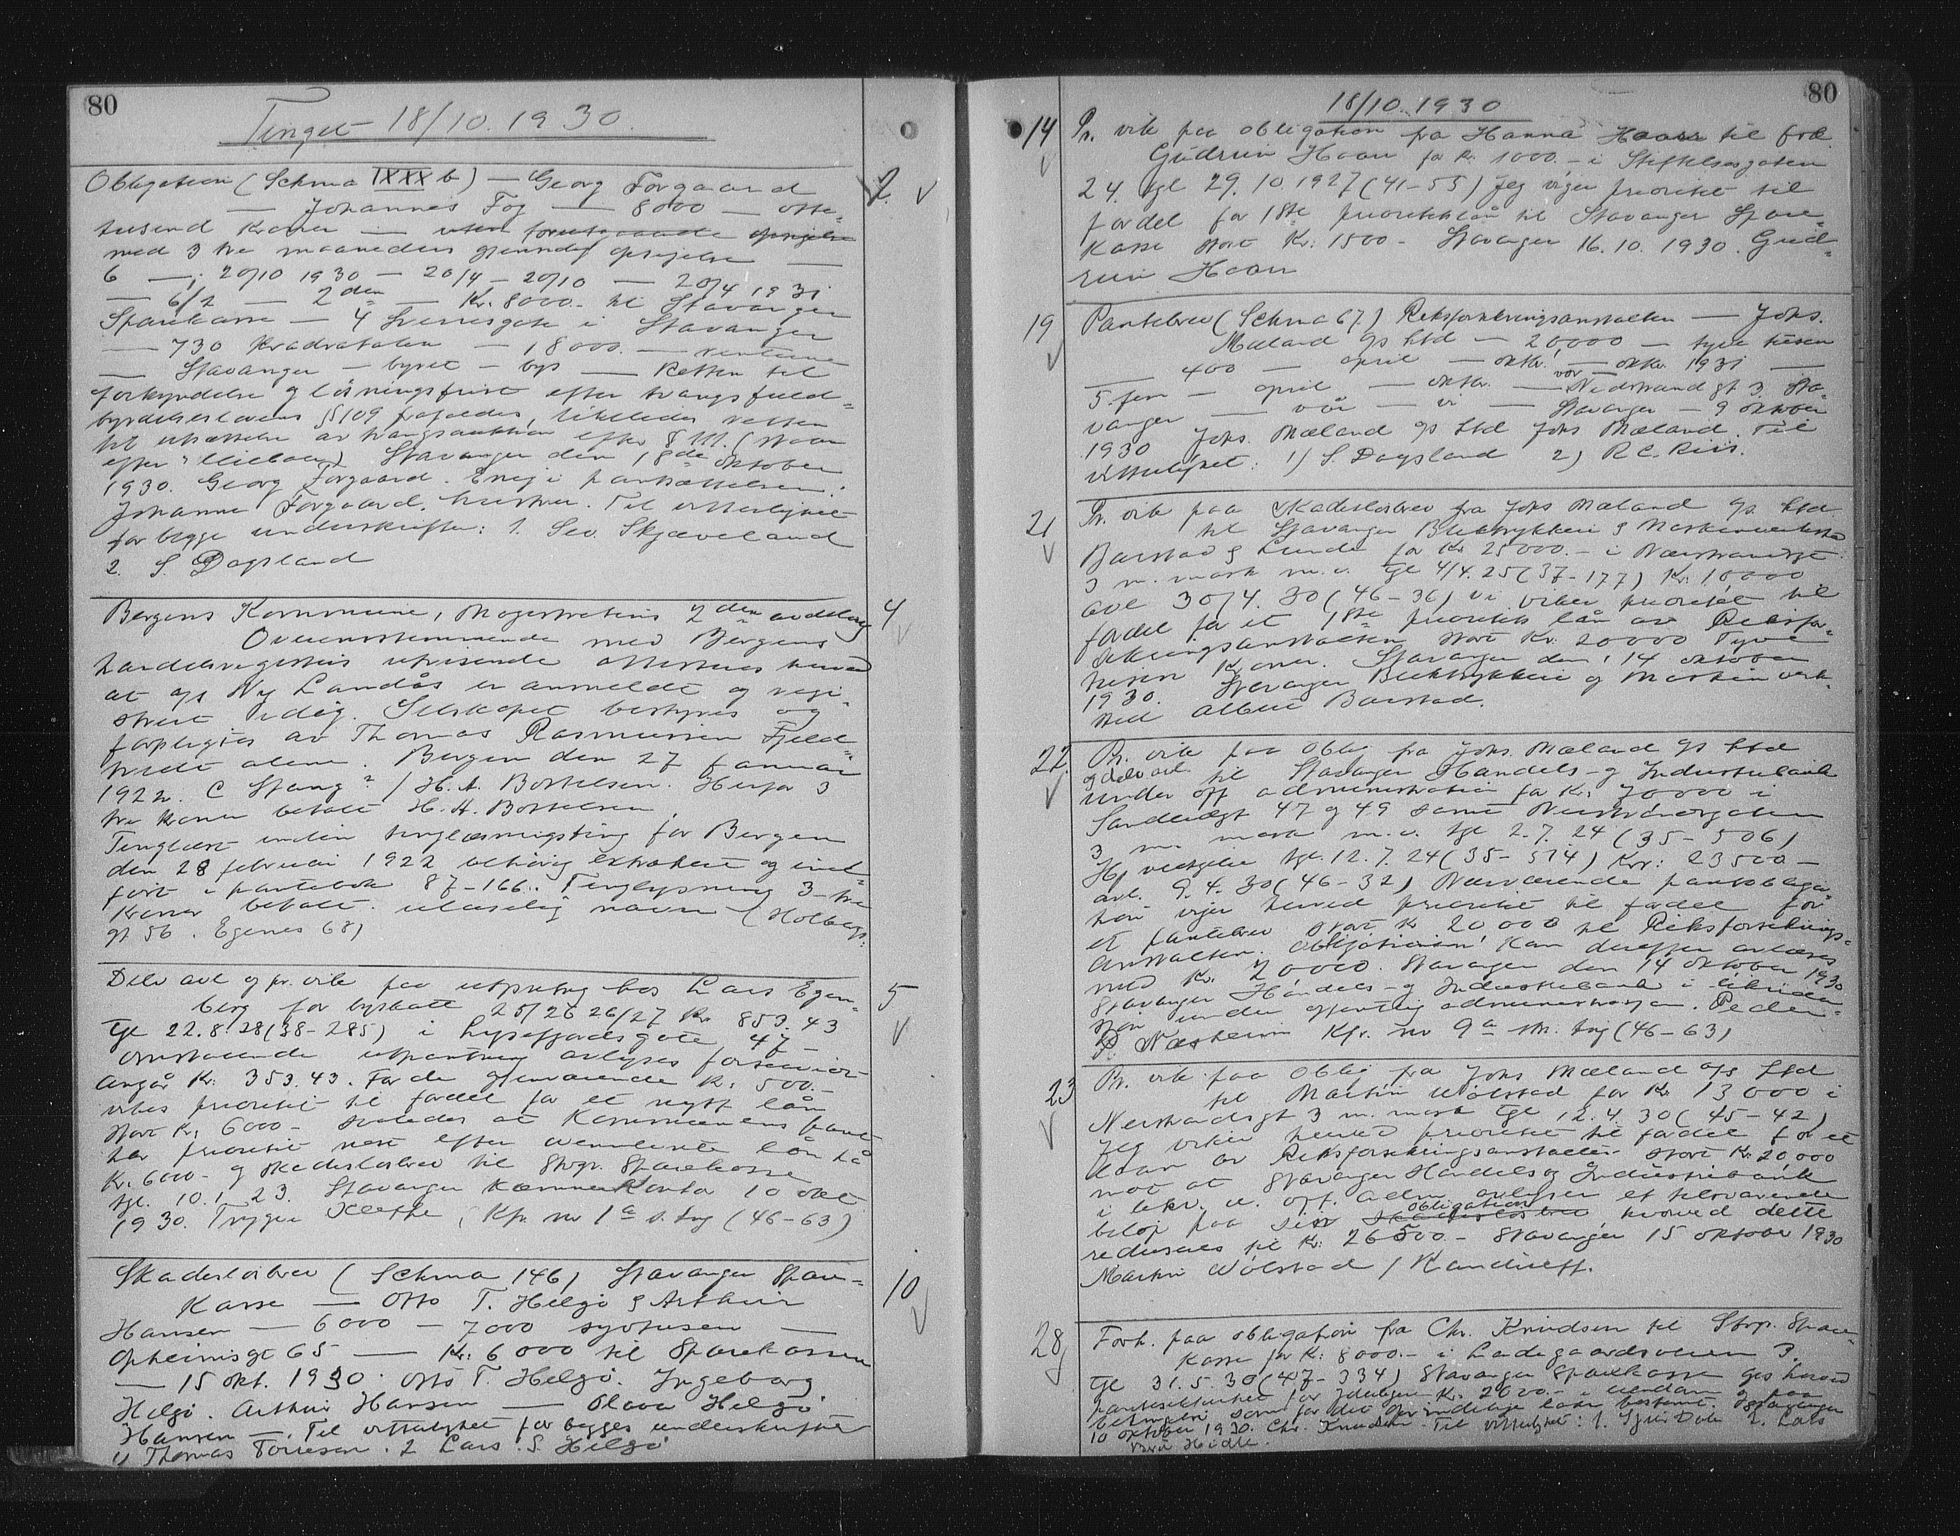 80
Tinget 18/10. 1930.
Obligation (Schma IXXX b) — Georg Forgaard
— Johannes Foy — 8000 — otte-
tusend Kroner — uten forutgaaende opsigelse
med 3 tre maaneders opsigelse —
6 — i 20/10 1930 — 20/4 – 20/10 — 20/4 1931
— 6/2 — 2den — Kr. 8000.- til Stavanger
Sparekasse — 4 Sverresgate i Stavanger
— 730 Kvadratalen — 18000. — renterne
— Stavanger — byret — bys — Retten til
forkyndelse og løsningsfrist efter tvangsfuld-
byrdelseslovens §109 frafaldes, likeledes retten
til utsættelse av tvangsauktion efter § 111. (
efter) Stavanger den 18de oktober
1930. Georg Forgaard. Enig i pantsættelsen:
Johanne Forgaard. hustru. Til vitterlighet
for begge underskrifter: 1. Sev. Skjæveland
2. S. Dagsland
2
Bergens Kommune, Magistratens 2den avdeling
Overensstemmende med Bergens
handelsregisters utvisende attesteres herved
at a/s Ny Landås er anmeldt og regi-
strert idag. Selskapet bestyres og
forpligtes av Thomas Rasmussen Fjeld-
tvedt alene. Bergen den 27 januar
1922. C Stang? / H. A. Bortelsen. Herfor 3
tre kroner betalt H. A. Bortelsen
Tinglæst inden tinglæsningsting for Bergen
den 28 februar 1922 behørig extrahert og ind-
ført i pantebok 87-166. Tinglysning 3 tre
Kroner betalt. ulæselig navn (Holbergs-
gt 56. Egenes 68)
4
Delv avl og pr. vik paa utpantng hos Lars Egen-
berg for byskatt 25/26 26/27 Kr 853.43
tgl 22.8.28 (38-285) i Lysefjordsgate 47 —
Omstaaende utpantning avlyses forsaavidt
angår Kr. 353.43. For de gjenværende Kr. 500.-
vikes prioritet til fordel for et nytt lån
stort Kr. 6000- saaledes at Kommunens pant
har prioritet nest efter nevnte lån på
Kr. 6000- og skadesløsbrev til Stvgr. Sparekasse
tgl. 10.1.23. Stavanger Kæmnerkontor 10 okt
1930. Trygve Kleppe, Kfr. nr 1a d. dag (46-63)
5
Skadesløsbrev (Schma 146) Stavanger Spare-
kasse — Otto T. Helgø & Arthur
Hansen — 6000 — 7000 syvtusen —
Opheimsgt 65 — Kr. 6000 til Sparekassen
— 15 okt. 1930. Otto T. Helgø. Ingeborg
Helgø. Arthur Hansen — Olava Helgø
Hansen —. Til vitterlighet for begges underskrifter
1) Thomas Torresen. 2 Lars S. Helgø
10
80
18/10. 1930
14
Pr. vik paa obligation fra Hanna Haar til frk.
Gudrun Haar for kr. 1000.- i Stiftelsesgaten
24. tgl 29.10.1927 (41-55) Jeg viger prioritet til
fordel for 1ste prioritetslån til Stavanger Spare-
kasse stort Kr. 1500- Stavanger 16.10.1930. Gud-
run Haar
19
Pantebrev (Schma 67) Riksforsikringsanstalten — Johs.
Mæland a/s Ltd — 20000 — tyve tusen
— 400 — april — oktr. — oktr. 1931 —
5 fem — april — oktr. — vor — Nedstrandgt 3. Sta-
vanger — vår — vi — Stavanger — 9 oktober
1930 Johs. Mæland a/s Ltd Johs Mæland. Til
vitterlighet: 1) S. Dagsland 2) R. C. Riis.
21
Pr. vik paa Skadesløsbrev fra Johs Mæland a/s Ltd
til Stavanger Blikktrykkeri & Maskinverksted
Barstad & Lunde for Kr 25000.- i Nærstrandsgt
3 m. mask m.v. tgl 4/4.25 (37-177) Kr. 10000
avl 30/4.30 (46-36) Vi viker prioritet til
fordel for et 1ste prioritets lån av Riksfor-
sikringsanstalten stort Kr. 20000 Tyve
tusen Kroner. Stavanger den 14 oktober
1930. Stavanger Blikktrykkeri og Maskinverk-
sted Albert Barstad.
22.
Pr. vik paa oblig fra Johs. Mæland a/s Ltd
og delv avl. til Stavanger Handels- og Industribank
under off administration for Kr. 70000 i
Sandeidgt 47 og 49 samt Nedstrandsgaten
3 m. mask m.v. tgl 2.7.24 (35-506)
Hj vedtgelse tgl. 12.7.24 (35-514) Kr.: 23500 —
avl. 9.4.30 (46-32) Nærværende pantobliga-
tion viger herved prioritet til fordel for
et pantebrev stort kr 20000 til Riksforsikrings-
anstalten. Obligationen kan derefter avlæses
med Kr. 20000. Stavanger den 14 oktober 1930
Stavanger Handels- og Industribank i likvida-
sjon under offentlig administrasjon. Peder
P. Næsheim Kfr. nr 9a str. dag (46-63)
23
Pr. vik paa oblig fra Johs Mæland a/s Ltd
til Martin Wølstad for Kr 13000 i
Nedstrandsgt 3 m. mask tgl 12.4.30 (45-42)
Jeg viker herved prioritet til fordel for et
laan av Riksforsikringsanstalten stort Kr. 20000
mot at Stavanger Handels og Industribank
i likv. u. off. adm avlyser et tilsvarende
beløp paa sin skadesløsbrev obligation, hvorved dette
reduseres til Kr. 26500.- Stavanger 15 oktober 1930
Martin Wølstad / Kandidatf.
28
Forh. paa obligation fra Chr. Knudsen til Stvgr. Spare-
kasse for Kr. 8000.- i Ladegaardsveien 3.
tgl 31.5.30 (47-334) Stavanger Sparekasse gis herved
pantesikkerhet for ytterligere Kr. 2000.- i eiendom og paa
betingelser som for det oprindelige laan bestemt. Stavanger
10 oktober 1930. Chr. Knudsen. Til vitterlighet: 1. Sjur Dale 2. Lars
Hidle.